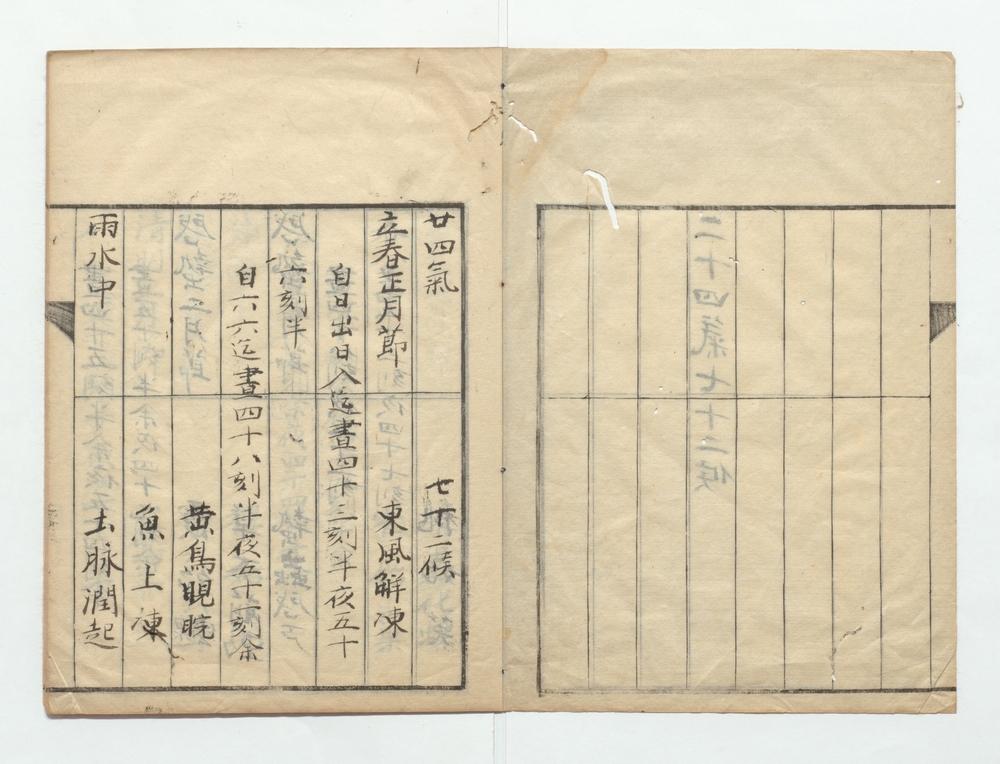 二十四氣七十二候
廿四氣 七十二候
立春正月節 東風觧凍
自日出日入迄晝四十三刻半夜五十
六刻半
自六六迄晝四十八刻半夜五十一刻余
黄鳥睍睆
魚上凍
雨水中 土脉潤起